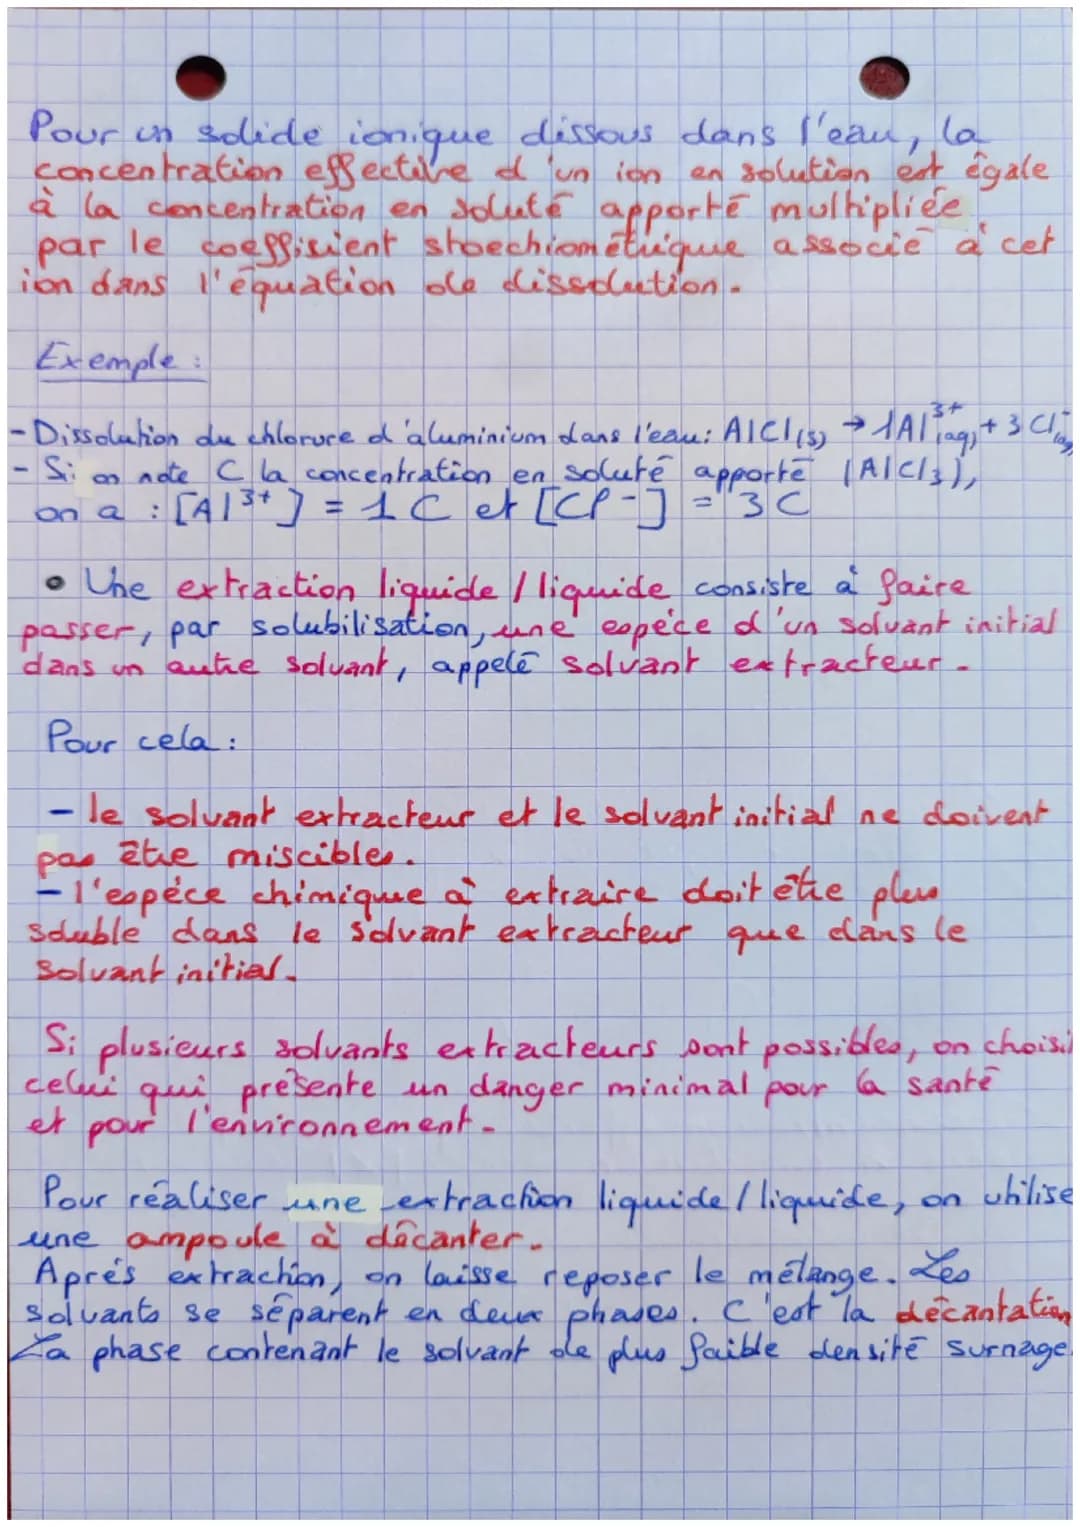 Pour un solide ionique dissous dans l'eau, la
concentration effective d'un ion en solution est égale
à la concentration en soluté apporté multipliée
par le coeffisient stoechiométrique associé à cet
ion dans l'équation de dissolution.
Exemple :
- Dissolution du chlorure d'aluminium dans l'eau: AlCl(s) → 1Al³⁺(aq) + 3 Cl⁻(aq)
- Si on note C la concentration en soluté apporté (AlCl3),
on a : [Al³⁺] = 1 C et [Cl⁻] = 3 C
• Une extraction liquide / liquide consiste à faire
passer, par solubilisation, une espéce d'un solvant initial
dans un autre solvant, appelé solvant extracteur.
Pour cela :
- le solvant extracteur et le solvant initial ne doivent
pas être miscibles.
- l'espéce chimique à extraire doit être plus
soluble dans le solvant extracteur que dans le
solvant initial.
Si plusieurs solvants extracteurs sont possibles, on choisi
celui qui présente un danger minimal pour la santé
et pour l'environnement.
Pour réaliser une extraction liquide / liquide, on utilise
une ampoule à décanter.
Aprés extraction, on laisse reposer le mélange. Les
solvants se séparent en deux phases. C'est la décantation
La phase contenant le solvant de plus faible densité surnage.